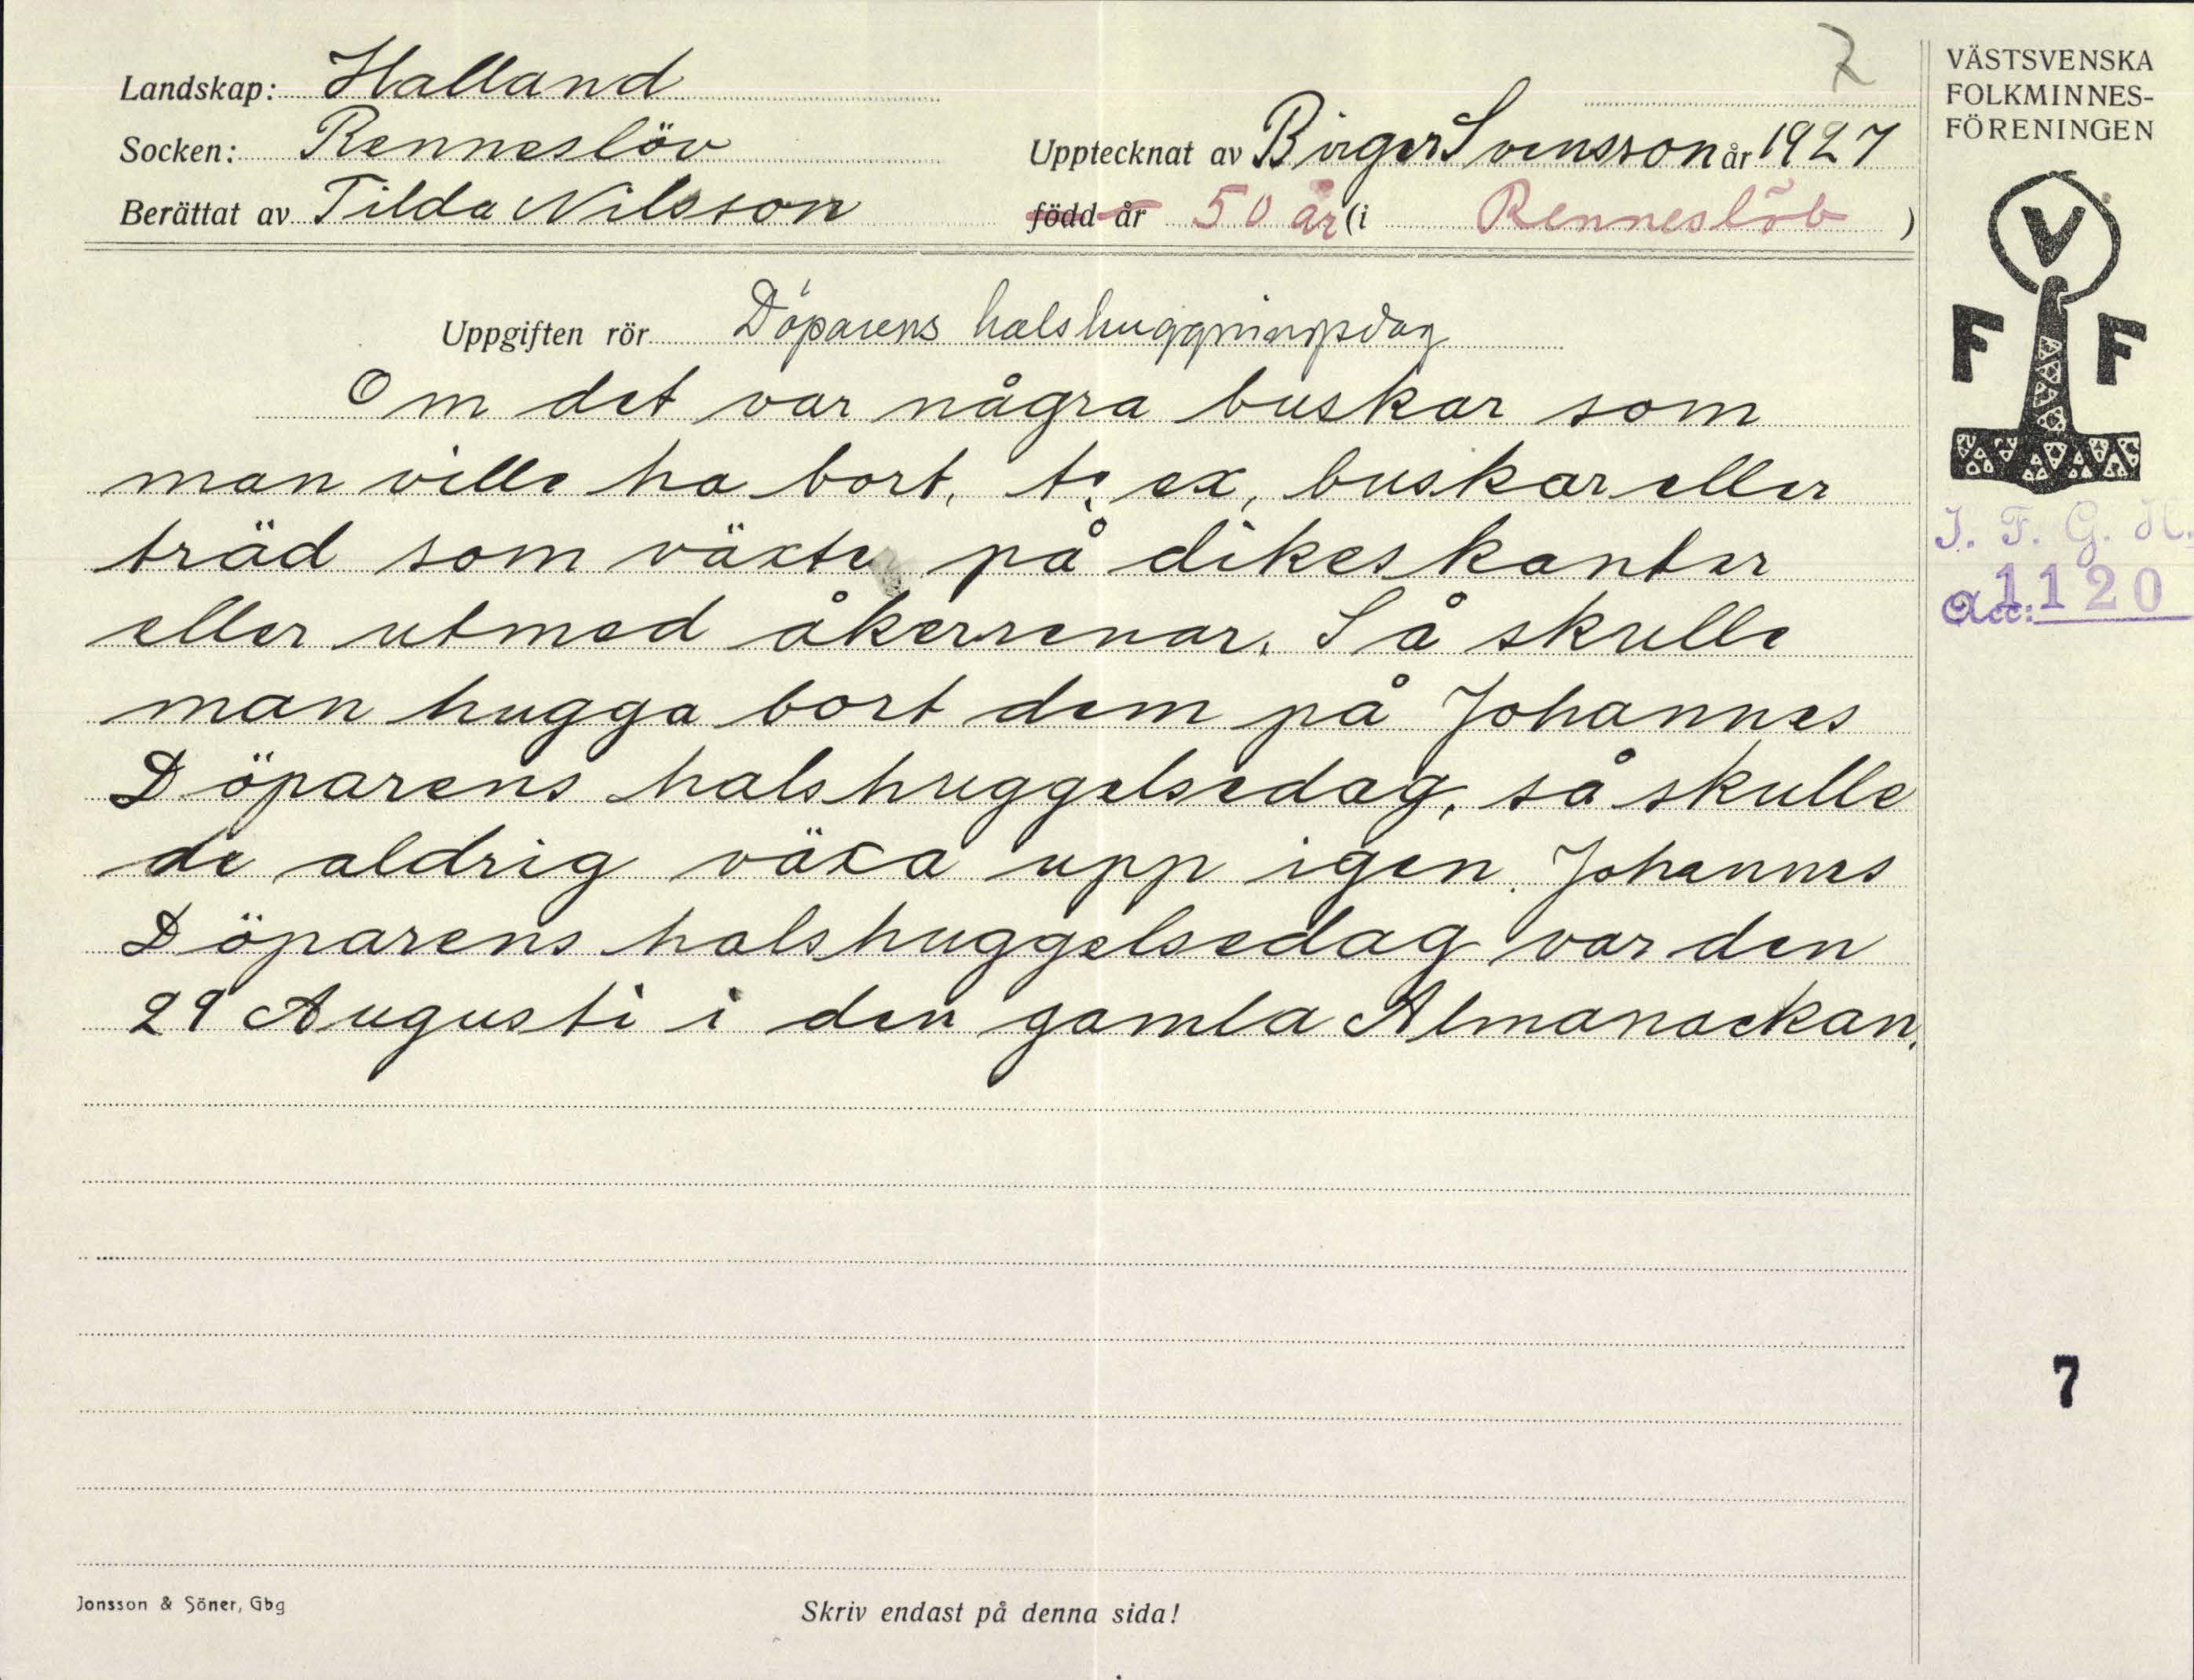 Landskap: Halland
Socken: Renneslöv
Berättat av Tilda Nilsson
7
Upptecknat av Birger Svensson år 1927
född år 50 år (i Renneslöv)
VÄSTSVENSKA
FOLKMINNES-
FÖRENINGEN
V
F F
I. F. G. H.
Acc: 1120
Uppgiften rör Döparens halshuggningsdag
Om det var några buskar som
man ville ha bort, t. ex, buskar eller
träd som växte på dikeskanter
eller utmed åkerrenar. Så skulle
man hugga bort dem på Johannes
Döparens halshuggelsedag, så skulle
de aldrig växa upp igen. Johannes
Döparens halshuggelsedag var den
29 Augusti i den gamla Almanackan.
7
Jonsson & Söner, Gbg
Skriv endast på denna sida!